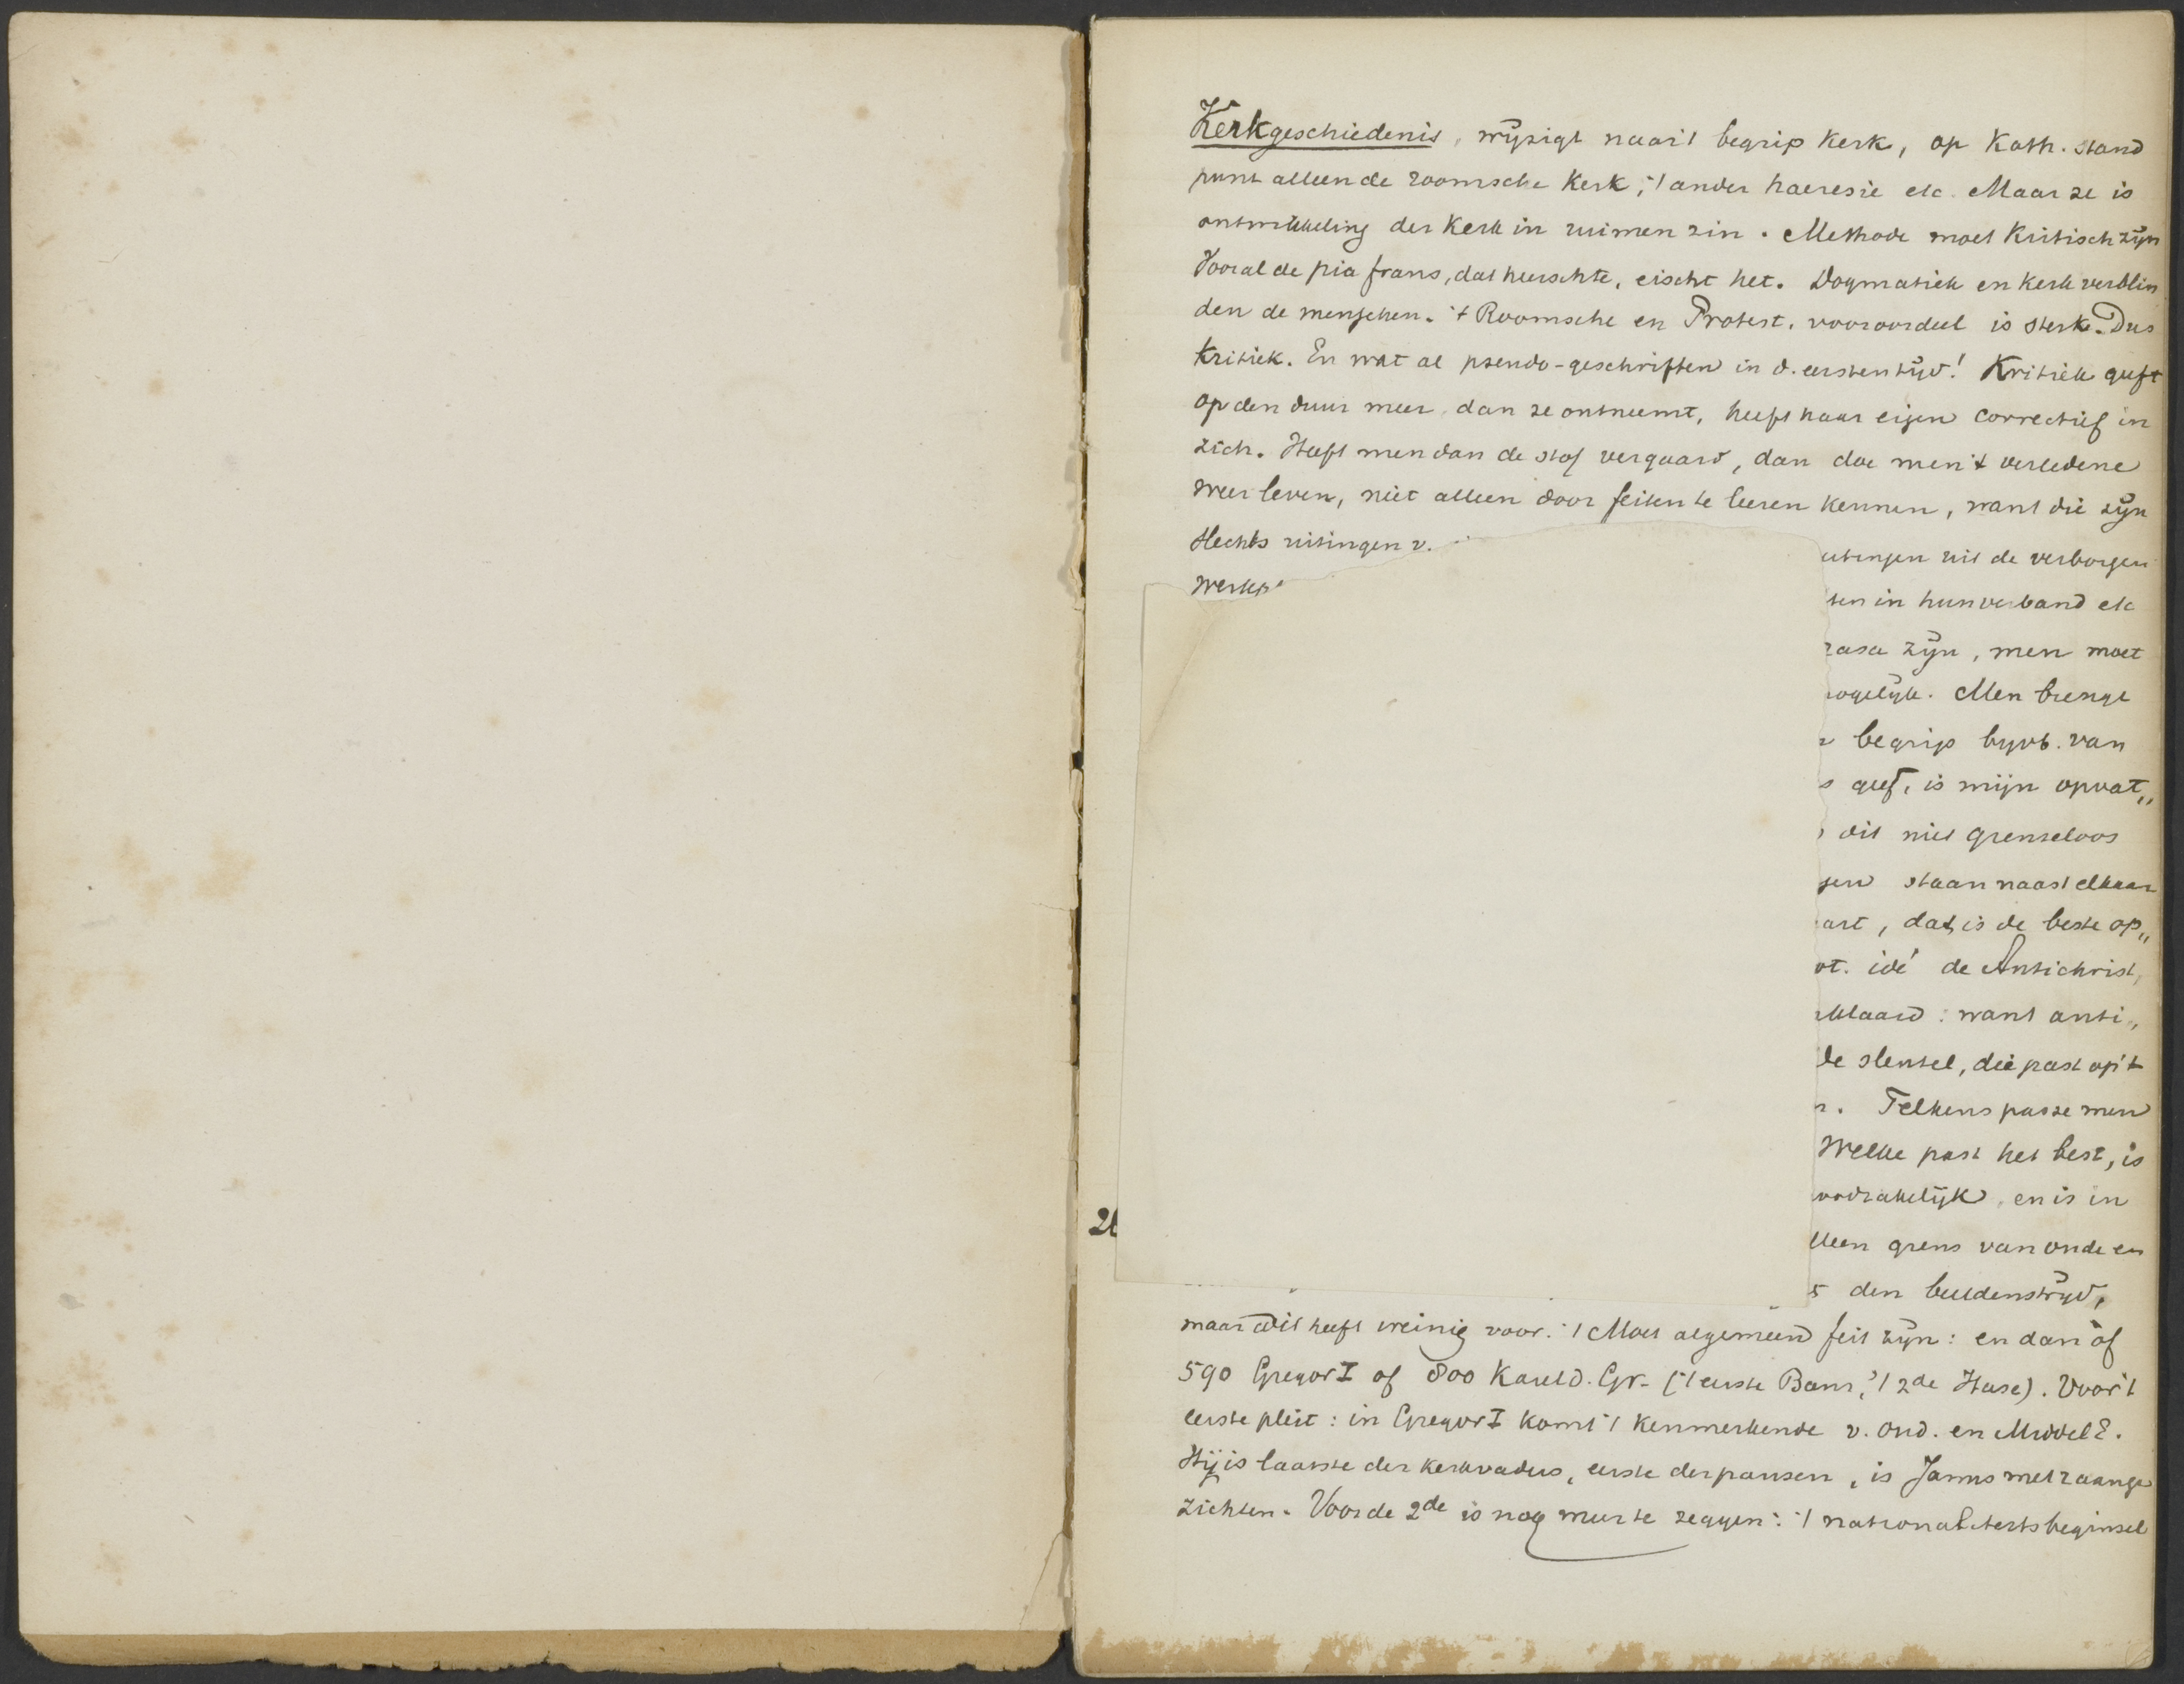 Kerkgeschiedenis, wijzigt naar 't begrip kerk, op Kath. stand
punt alleen de roomsche kerk, 't ander haeresie etc. Maar ze is
ontwikkeling der kerk in ruimen zin. Methode moet kritisch zijn
Vooral de pia fraus, dat heerschte, eischt het. Dogmatiek en kerk verblin
den de menschen. 't Roomsche en Protest. vooroordeel is sterk. Dus
kritiek. En wat al pseudo-geschriften in d. eersten tijd! Kritiek geeft
op den duur meer dan ze ontneemt, heeft haar eigen correctief in
zich. Heeft men dan de stof vergaard, dan doe men 't verledene
weer leven, niet alleen door feiten te leeren kennen, want die zijn
slechts uitingen v. utingen uit de verborgen
werkp ten in hun verband etc
rasa zijn, men moet
ogelijk. Men brenge
begrip byvb. van
s geef, is mijn opvat„
dit niet grenseloos
gen staan naast elkaar
art, dat is de beste op„
ot. idé de Antichrist,
klaard: want anti„
de sleutel, die past op 't
r. Telkens passe men
Welke past het best, is
oodzakelijk en is in
lleen grens van oude en
s den beeldenstrijd,
21
maar dit heeft weinig voor. 't Moet algemeen feit zijn: en dan òf
590 Gregor I of 800 Karel d. Gr. ('t eerste Baur, 't 2de Hase). Voor 't
eerste pleit: in Gregor I komt 't kenmerkende v. Oud. en MiddelE.
Hij is laatste der kerkvaders, eerste der pausen, is Janus met 2 aange
zichten. Voor de 2de is nog meer te zeggen: 't nationaliteitsbeginsel